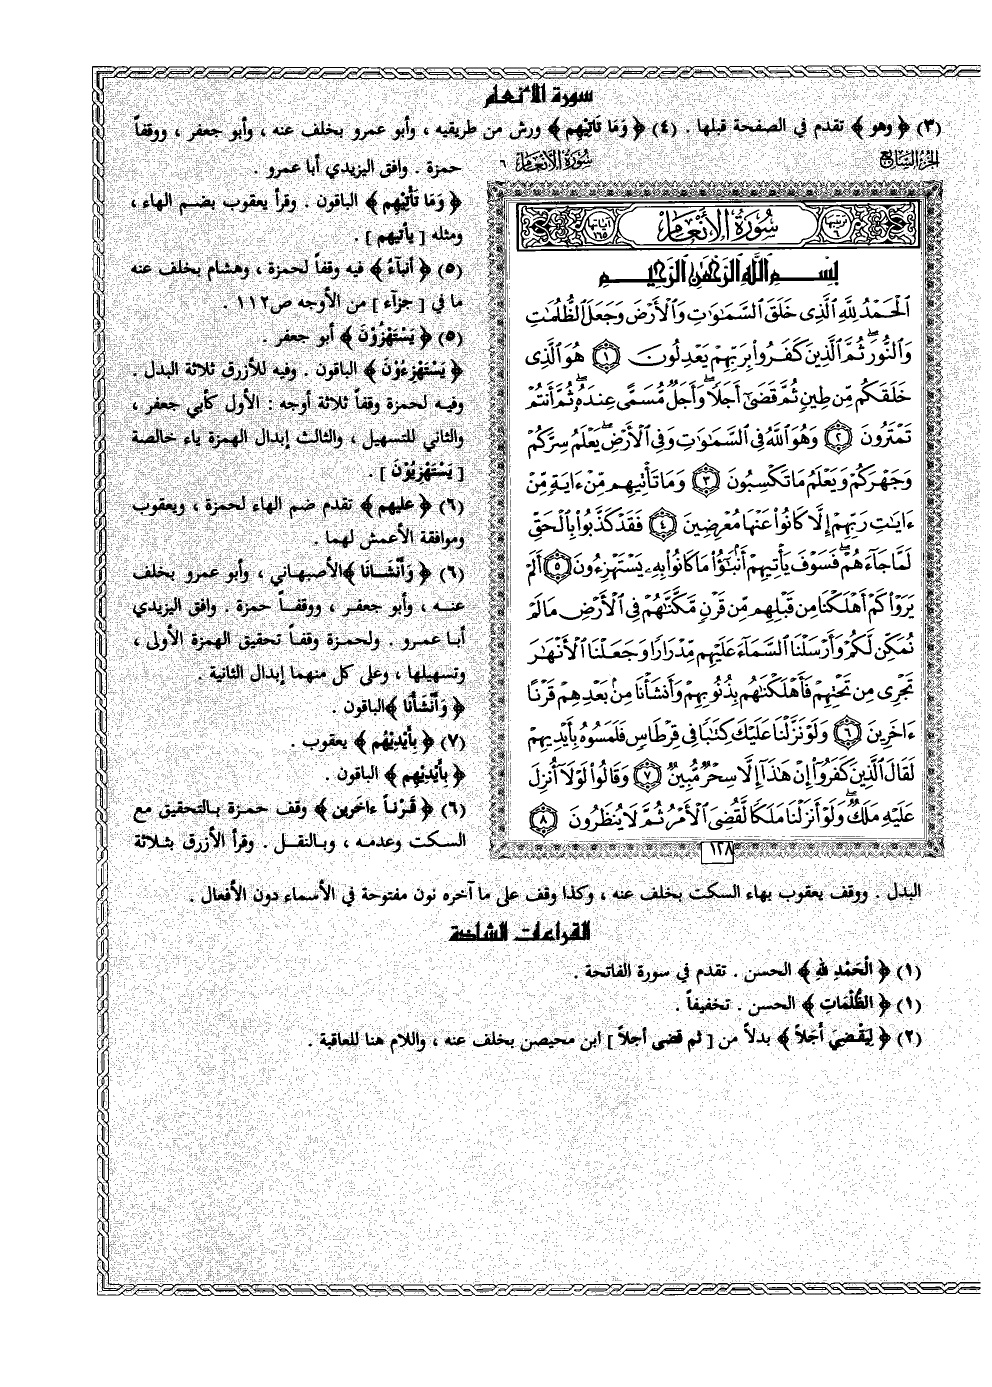 سورة الأنعام
(٣) ﴿ وهو ﴾ تقدم في الصفحة قبلها . (٤) ﴿ وَمَا تَاتِيهِم ﴾ ورش من طريقيه ، وأبو عمرو بخلف عنه ، وأبو جعفر ، ووقفاً
حمزة . وافق اليزيدي أبا عمرو .
﴿ وَمَا تَأْتِيهِم ﴾ الباقون . وقرأ يعقوب بضم الهاء ،
ومثله [ يأتيهم ] .
(٥) ﴿ أنبآءُ ﴾ فيه وقفاً لحمزة ، وهشام بخلف عنه
ما في [ جزآء ] من الأوجه ص١١٢ .
(٥) ﴿ يَسْتَهْزُوْنَ ﴾ أبو جعفر .
﴿ يَسْتَهْزِءُوْنَ ﴾ الباقون . وفيه للأزرق ثلاثة البدل .
وفيه لحمزة وقفاً ثلاثة أوجه : الأول كأبي جعفر ،
والثاني للتسهيل ، والثالث إبدال الهمزة ياء خالصة
[ يَسْتَهْزِيُوْنَ ] .
(٦) ﴿ عليهم ﴾ تقدم ضم الهاء لحمزة ، ويعقوب
وموافقة الأعمش لهما .
(٦) ﴿ وَأَنْشَانَا ﴾ الأصبهاني ، وأبو عمرو بخلف
عنه ، وأبو جعفر ، ووقفاً حمزة . وافق اليزيدي
أبا عمرو . ولحمزة وقفاً تحقيق الهمزة الأولى ،
وتسهيلها ، وعلى كل منهما إبدال الثانية .
﴿ وَأَنْشَأْنَا ﴾ الباقون .
(٧) ﴿ بِأَيْدِيْهُم ﴾ يعقوب .
﴿ بِأَيْدِيْهِم ﴾ الباقون .
(٦) ﴿ قَرْناً ءاخَرين ﴾ وقف حمزة بالتحقيق مع
السكت وعدمه ، وبالنقل . وقرأ الأزرق بثلاثة
الجزء السابع
سورة الأنعام ٦
ترتيبها ٦
سُورَةُ الأَنْعَامِ
آياتها ١٦٥
بِسْمِ اللَّهِ الرَّحْمَٰنِ الرَّحِيمِ
ٱلْحَمْدُ لِلَّهِ ٱلَّذِى خَلَقَ ٱلسَّمَٰوَٰتِ وَٱلْأَرْضَ وَجَعَلَ ٱلظُّلُمَٰتِ
وَٱلنُّورَ ۖ ثُمَّ ٱلَّذِينَ كَفَرُوا۟ بِرَبِّهِمْ يَعْدِلُونَ ١ هُوَ ٱلَّذِى
خَلَقَكُم مِّن طِينٍ ثُمَّ قَضَىٰٓ أَجَلًا ۖ وَأَجَلٌ مُّسَمًّى عِندَهُۥ ۖ ثُمَّ أَنتُمْ
تَمْتَرُونَ ٢ وَهُوَ ٱللَّهُ فِى ٱلسَّمَٰوَٰتِ وَفِى ٱلْأَرْضِ ۖ يَعْلَمُ سِرَّكُمْ
وَجَهْرَكُمْ وَيَعْلَمُ مَا تَكْسِبُونَ ٣ وَمَا تَأْتِيهِم مِّنْ ءَايَةٍ مِّنْ
ءَايَٰتِ رَبِّهِمْ إِلَّا كَانُوا۟ عَنْهَا مُعْرِضِينَ ٤ فَقَدْ كَذَّبُوا۟ بِٱلْحَقِّ
لَمَّا جَآءَهُمْ ۖ فَسَوْفَ يَأْتِيهِمْ أَنۢبَٰٓؤُا۟ مَا كَانُوا۟ بِهِۦ يَسْتَهْزِءُونَ ٥ أَلَمْ
يَرَوْا۟ كَمْ أَهْلَكْنَا مِن قَبْلِهِم مِّن قَرْنٍ مَّكَّنَّٰهُمْ فِى ٱلْأَرْضِ مَا لَمْ
نُمَكِّن لَّكُمْ وَأَرْسَلْنَا ٱلسَّمَآءَ عَلَيْهِم مِّدْرَارًا وَجَعَلْنَا ٱلْأَنْهَٰرَ
تَجْرِى مِن تَحْتِهِمْ فَأَهْلَكْنَٰهُم بِذُنُوبِهِمْ وَأَنشَأْنَا مِنۢ بَعْدِهِمْ قَرْنًا
ءَاخَرِينَ ٦ وَلَوْ نَزَّلْنَا عَلَيْكَ كِتَٰبًا فِى قِرْطَاسٍ فَلَمَسُوهُ بِأَيْدِيهِمْ
لَقَالَ ٱلَّذِينَ كَفَرُوٓا۟ إِنْ هَٰذَآ إِلَّا سِحْرٌ مُّبِينٌ ٧ وَقَالُوا۟ لَوْلَآ أُنزِلَ
عَلَيْهِ مَلَكٌ ۖ وَلَوْ أَنزَلْنَا مَلَكًا لَّقُضِىَ ٱلْأَمْرُ ثُمَّ لَا يُنظَرُونَ ٨
١٢٨
البدل . ووقف يعقوب بهاء السكت بخلف عنه ، وكذا وقف على ما آخره نون مفتوحة في الأسماء دون الأفعال .
القراءات الشاذة
(١) ﴿ الْحَمْدِ لِلَّهِ ﴾ الحسن . تقدم في سورة الفاتحة .
(١) ﴿ الظُّلْمَاتِ ﴾ الحسن . تخفيفاً .
(٢) ﴿ لِيَقْضِيَ أَجَلاً ﴾ بدلاً من [ ثم قضى أجلاً ] ابن محيصن بخلف عنه ، واللام هنا للعاقبة .